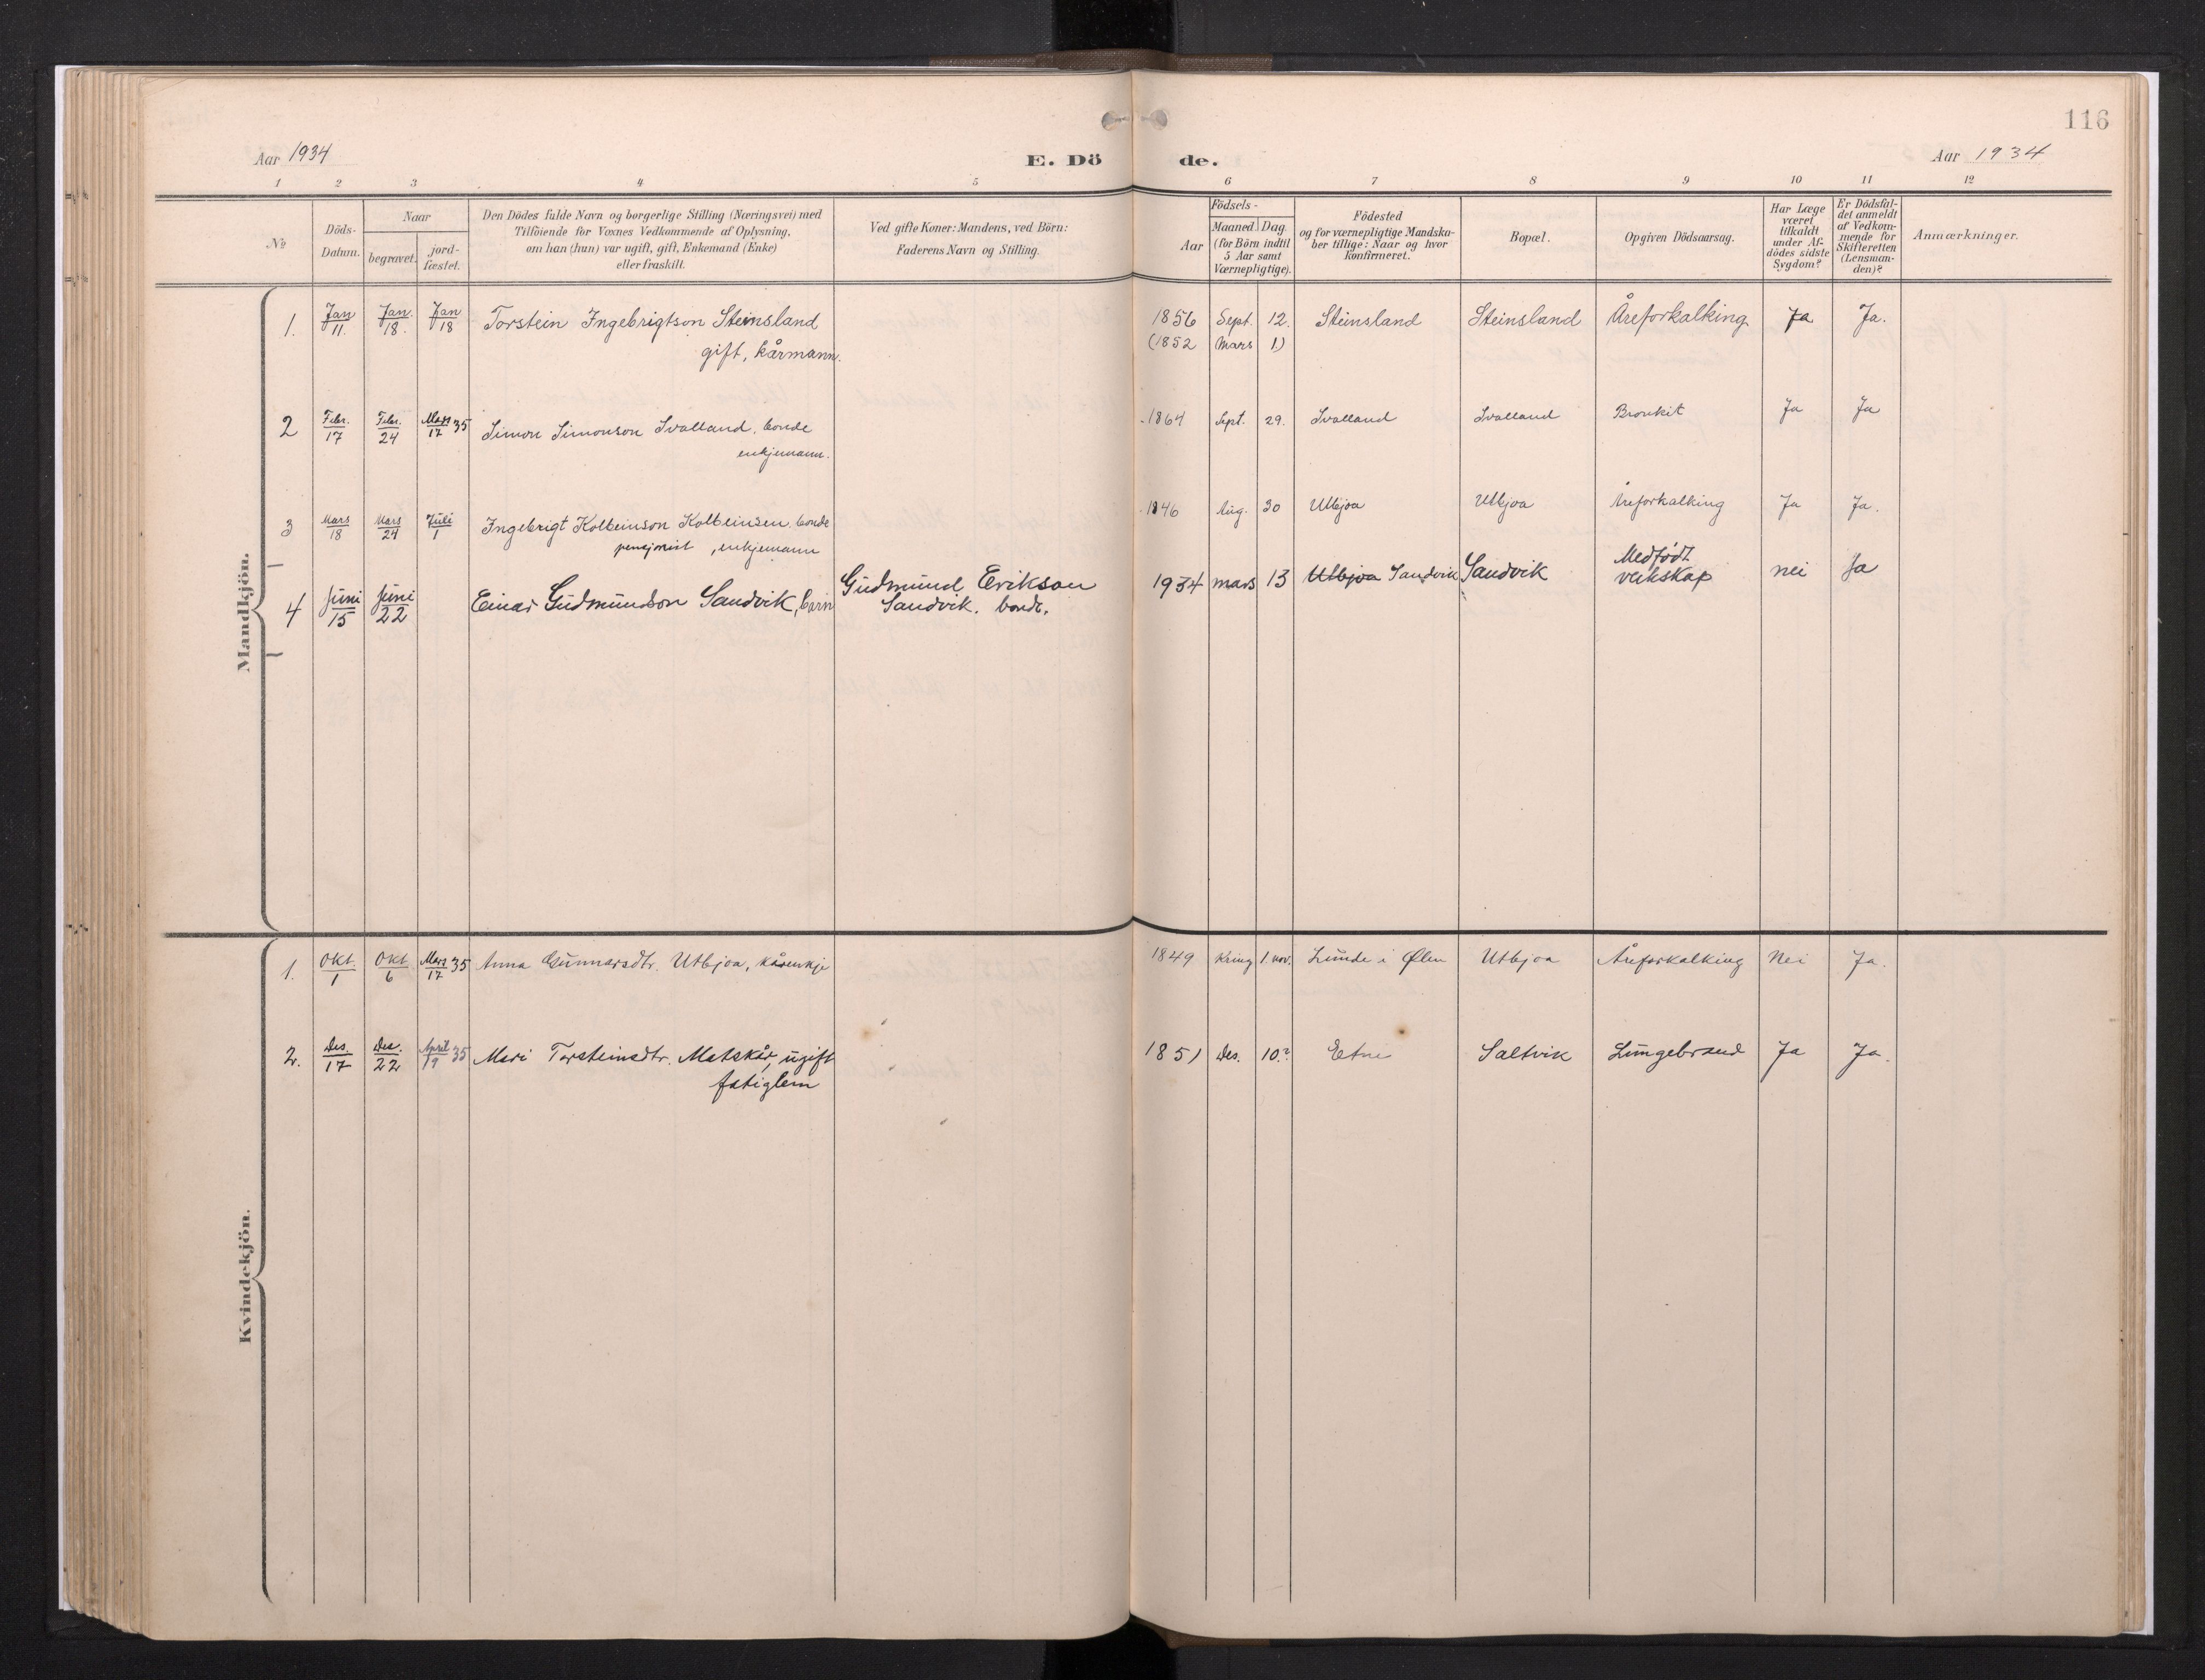 116
Aar 1934
E. Dö de.
Aar 1934
1 2 3 4 5 6 7 8 9 10 11 12
№
Döds-
Datum.
Naar
begravet.
jord-
fæstet.
Den Dödes fulde Navn og borgerlige Stilling (Næringsvei) med
Tilföiende for Voxnes Vedkommende af Oplysning,
om han (hun) var ugift, gift, Enkemand (Enke)
eller fraskilt.
Ved gifte Koner: Mandens, ved Börn:
Faderens Navn og Stilling.
Födsels-
Aar
Maaned. Dag.
(for Börn indtil
5 Aar samt
Værnepligtige).
Födested
og for værnepligtige Mandska-
ber tillige: Naar og hvor
konfirmeret.
Bopæl.
Opgiven Dödsaarsag.
Har Læge
været
tilkaldt
under Af-
dödes sidste
Sygdom?
Er Dödsfal-
det anmeldt
af Vedkom-
mende for
Skifteretten
(Lensman-
den)?
Anmærkninger.
Mandkjön.
1. Jan/11. Jan./18. Jan/18 Torstein Ingebrigtson Steinsland 1856 Sept. 12. Steinsland Steinsland Åreforkalking Ja Ja.
gift, kårmann. (1852 Mars 1)
2 Febr./17 Febr./24 Mars/17 35 Simon Simonson Svalland, bonde 1864 Sept. 29. Svalland Svalland Bronkit Ja Ja
enkjemann.
3 Mars/18 Mars/24 Juli/1 Ingebrigt Kolbeinson Kolbeinsen, bonde 1846 Aug. 30 Utbjoa Utbjoa Åreforkalking Ja Ja.
pensjonist, enkjemann
4 Juni/15 Juni/22 Einar Gudmundson Sandvik, barn Gudmund Erikson 1934 mars 13 Utbjoa Sandvik Sandvik Medfödt nei Ja
Sandvik. bonde. veikskap
Kvindekjön.
1. Okt./1 Okt/6 Mars/17 35 Anna Gunnarsdtr. Utbjoa, kårenkje 1849 Kring 1. nov. Lunde i Ølen Utbjoa Åreforkalking Nei Ja.
2. Des./17 Des./22 April/19 35 Mari Torsteinsdtr. Matskår, ugift 1851 Des. 10.? Etne Saltvik Lungebrand Ja Ja.
fatiglem